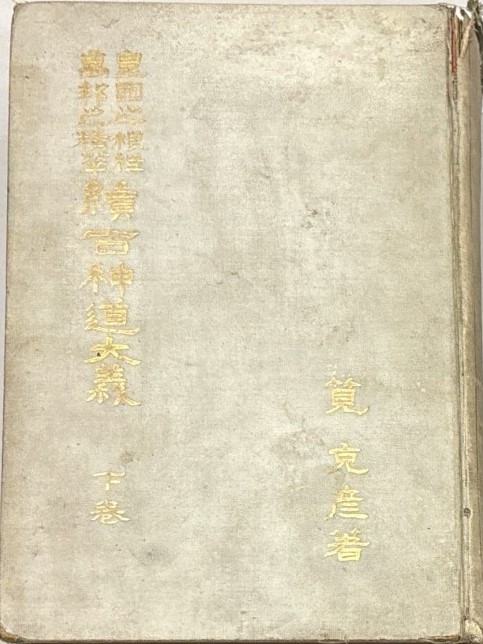 皇國之根柢
萬邦之精華
續古神道大義
下卷
筧克彦著